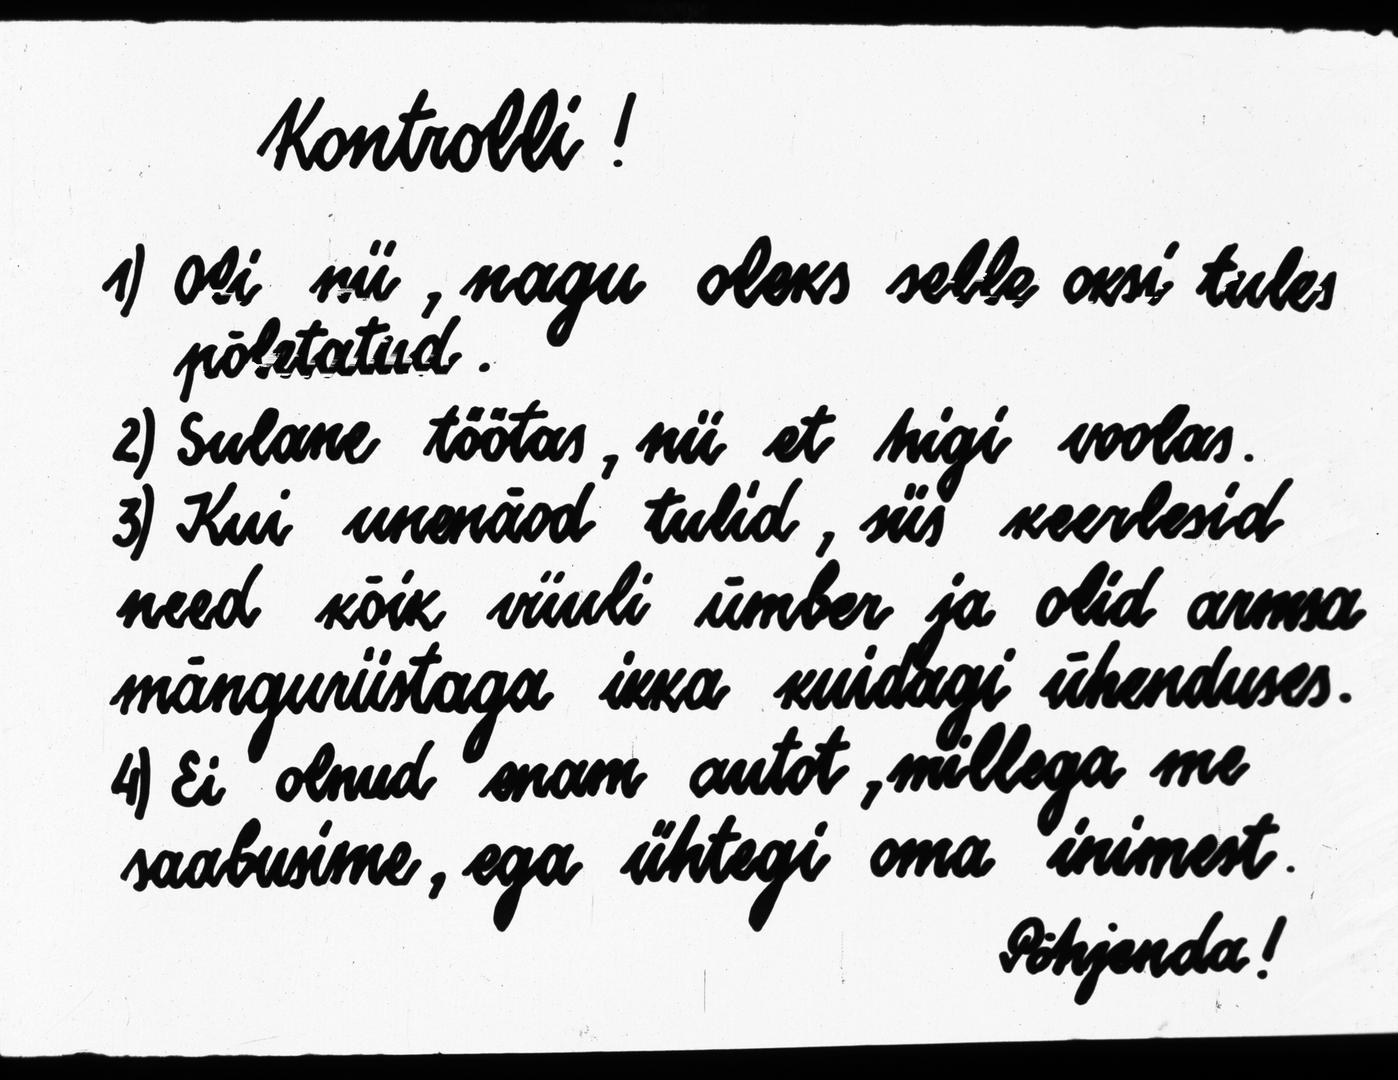 Kontrolli!
1) Oli nii, nagu oleks selle oksi tules
põletatud.
2) Sulane töötas, nii et higi voolas.
3) Kui unenäod tulid, siis keerlesid
need kõik viiuli ümber ja olid armsa
mänguriistaga ikka kuidagi ühenduses.
4) Ei olnud enam autot, millega me
saabusime, ega ühtegi oma inimest.
Põhjenda!